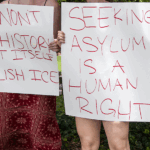 NONT
HISTOR
T ITSELF
LISH ICE
SEEKING
ASYLUM
IS A
HUMAN
RIGHT